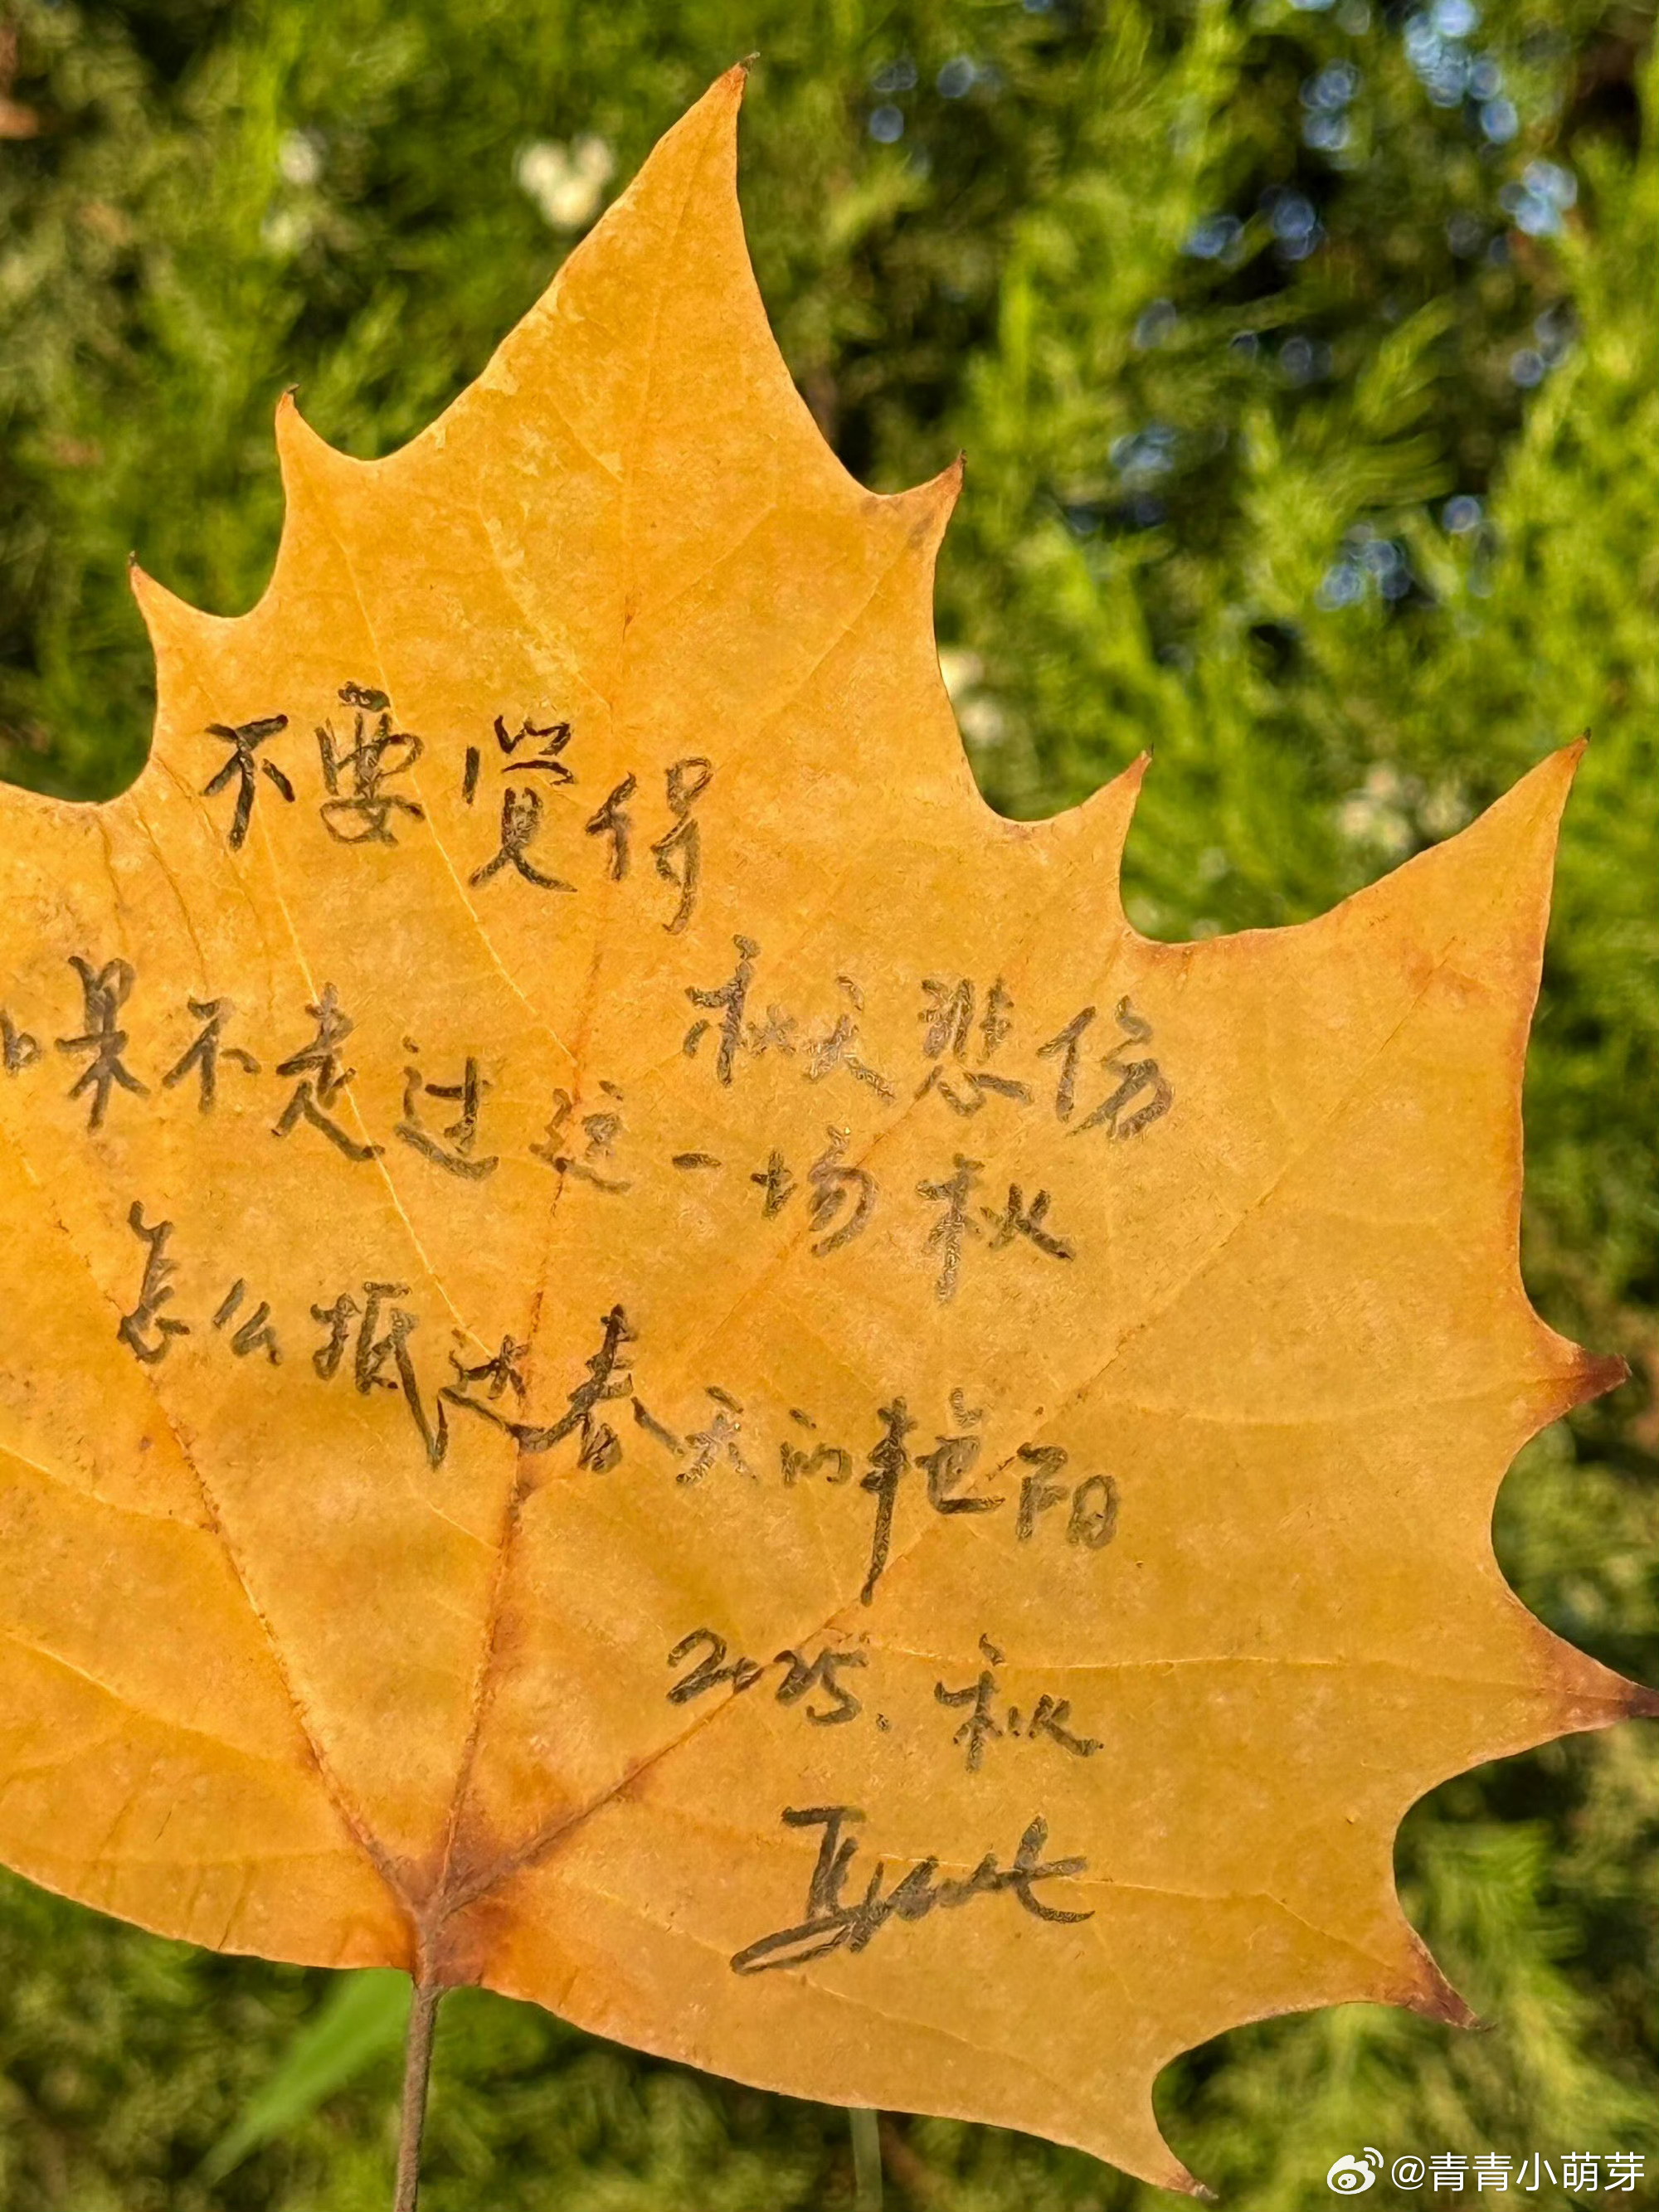 不要觉得
秋天悲伤
如果不走过这一场秋
怎么抵达春天的艳阳
2025.秋
@青青小萌芽